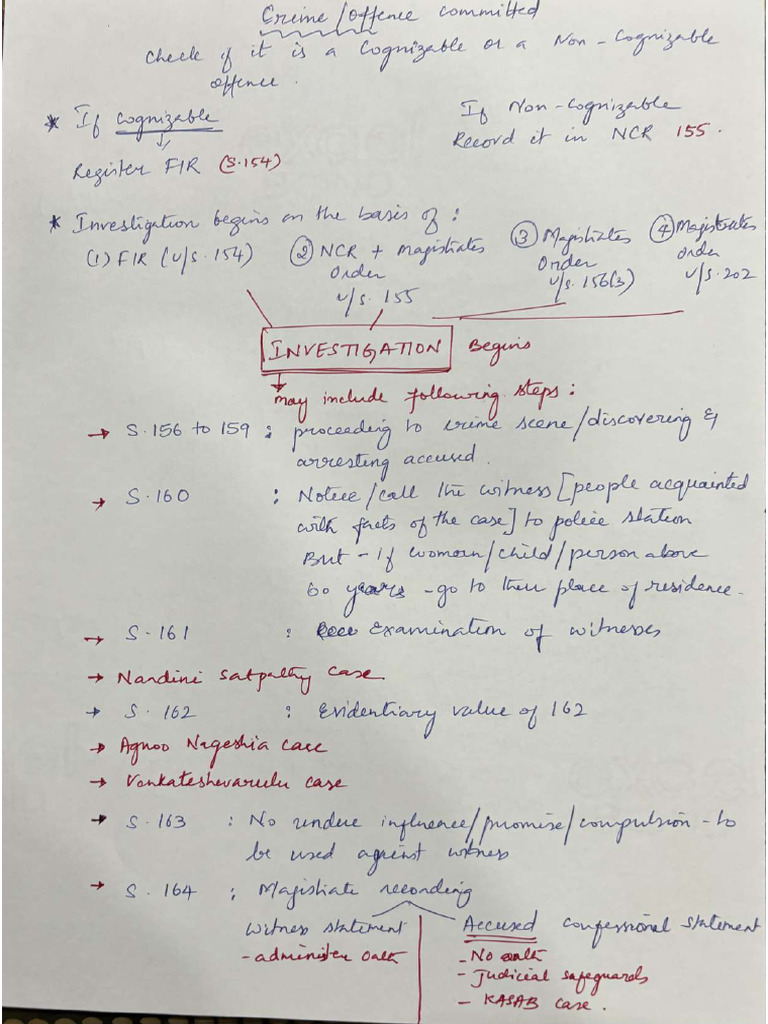 Crime/Offence committed
Check if it is a Cognizable or a Non-Cognizable
offence.
* If Cognizable
Register FIR (S.154)
If Non-Cognizable
Record it in NCR 155.
* Investigation begins on the basis of:
(1) FIR (u/s. 154)
② NCR + Magistrates
Order
u/s. 155
③ Magistrates
Order
u/s. 156(3)
④ Magistrates
Order
u/s. 202
INVESTIGATION Begins
may include following steps:
→ S.156 to 159 : proceeding to crime scene/discovering &
arresting accused.
→ S.160 : Notice/call the witness [people acquainted
with facts of the case] to police station
But - if women/child/person above
60 years - go to their place of residence.
→ S.161 : Examination of witnesses
→ Nandini Satpathy case
→ S.162 : Evidentiary value of 162
→ Agnoo Nageshia case
→ Venkateshwarulu case
→ S.163 : No undue influence/promise/compulsion - to
be used against witness
→ S.164 : Magistrate recording
Witness statement
- administer Oath
Accused confessional statement
- No oath
- Judicial safeguards
- KASAB case.